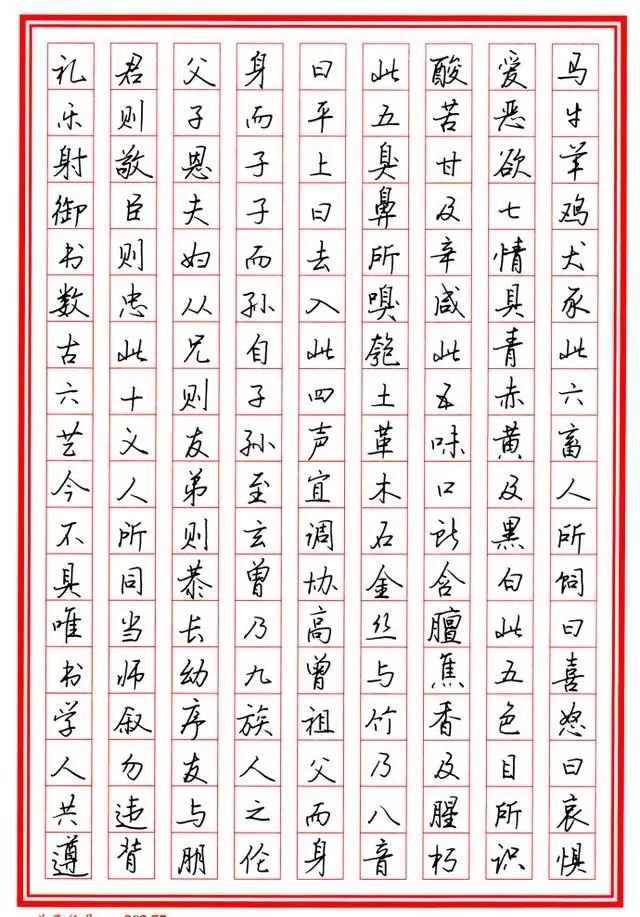 马牛羊鸡犬豕此六畜人所饲曰喜怒曰哀惧
爱恶欲七情具青赤黄及黑白此五色目所识
酸苦甘及辛咸此五味口所含膻焦香及腥朽
此五臭鼻所嗅匏土革木石金丝与竹乃八音
曰平上曰去入此四声宜调协高曾祖父而身
身而子子而孙自子孙至玄曾乃九族人之伦
父子恩夫妇从兄则友弟则恭长幼序友与朋
君则敬臣则忠此十义人所同当师叙勿违背
礼乐射御书数古六艺今不具唯书学人共遵